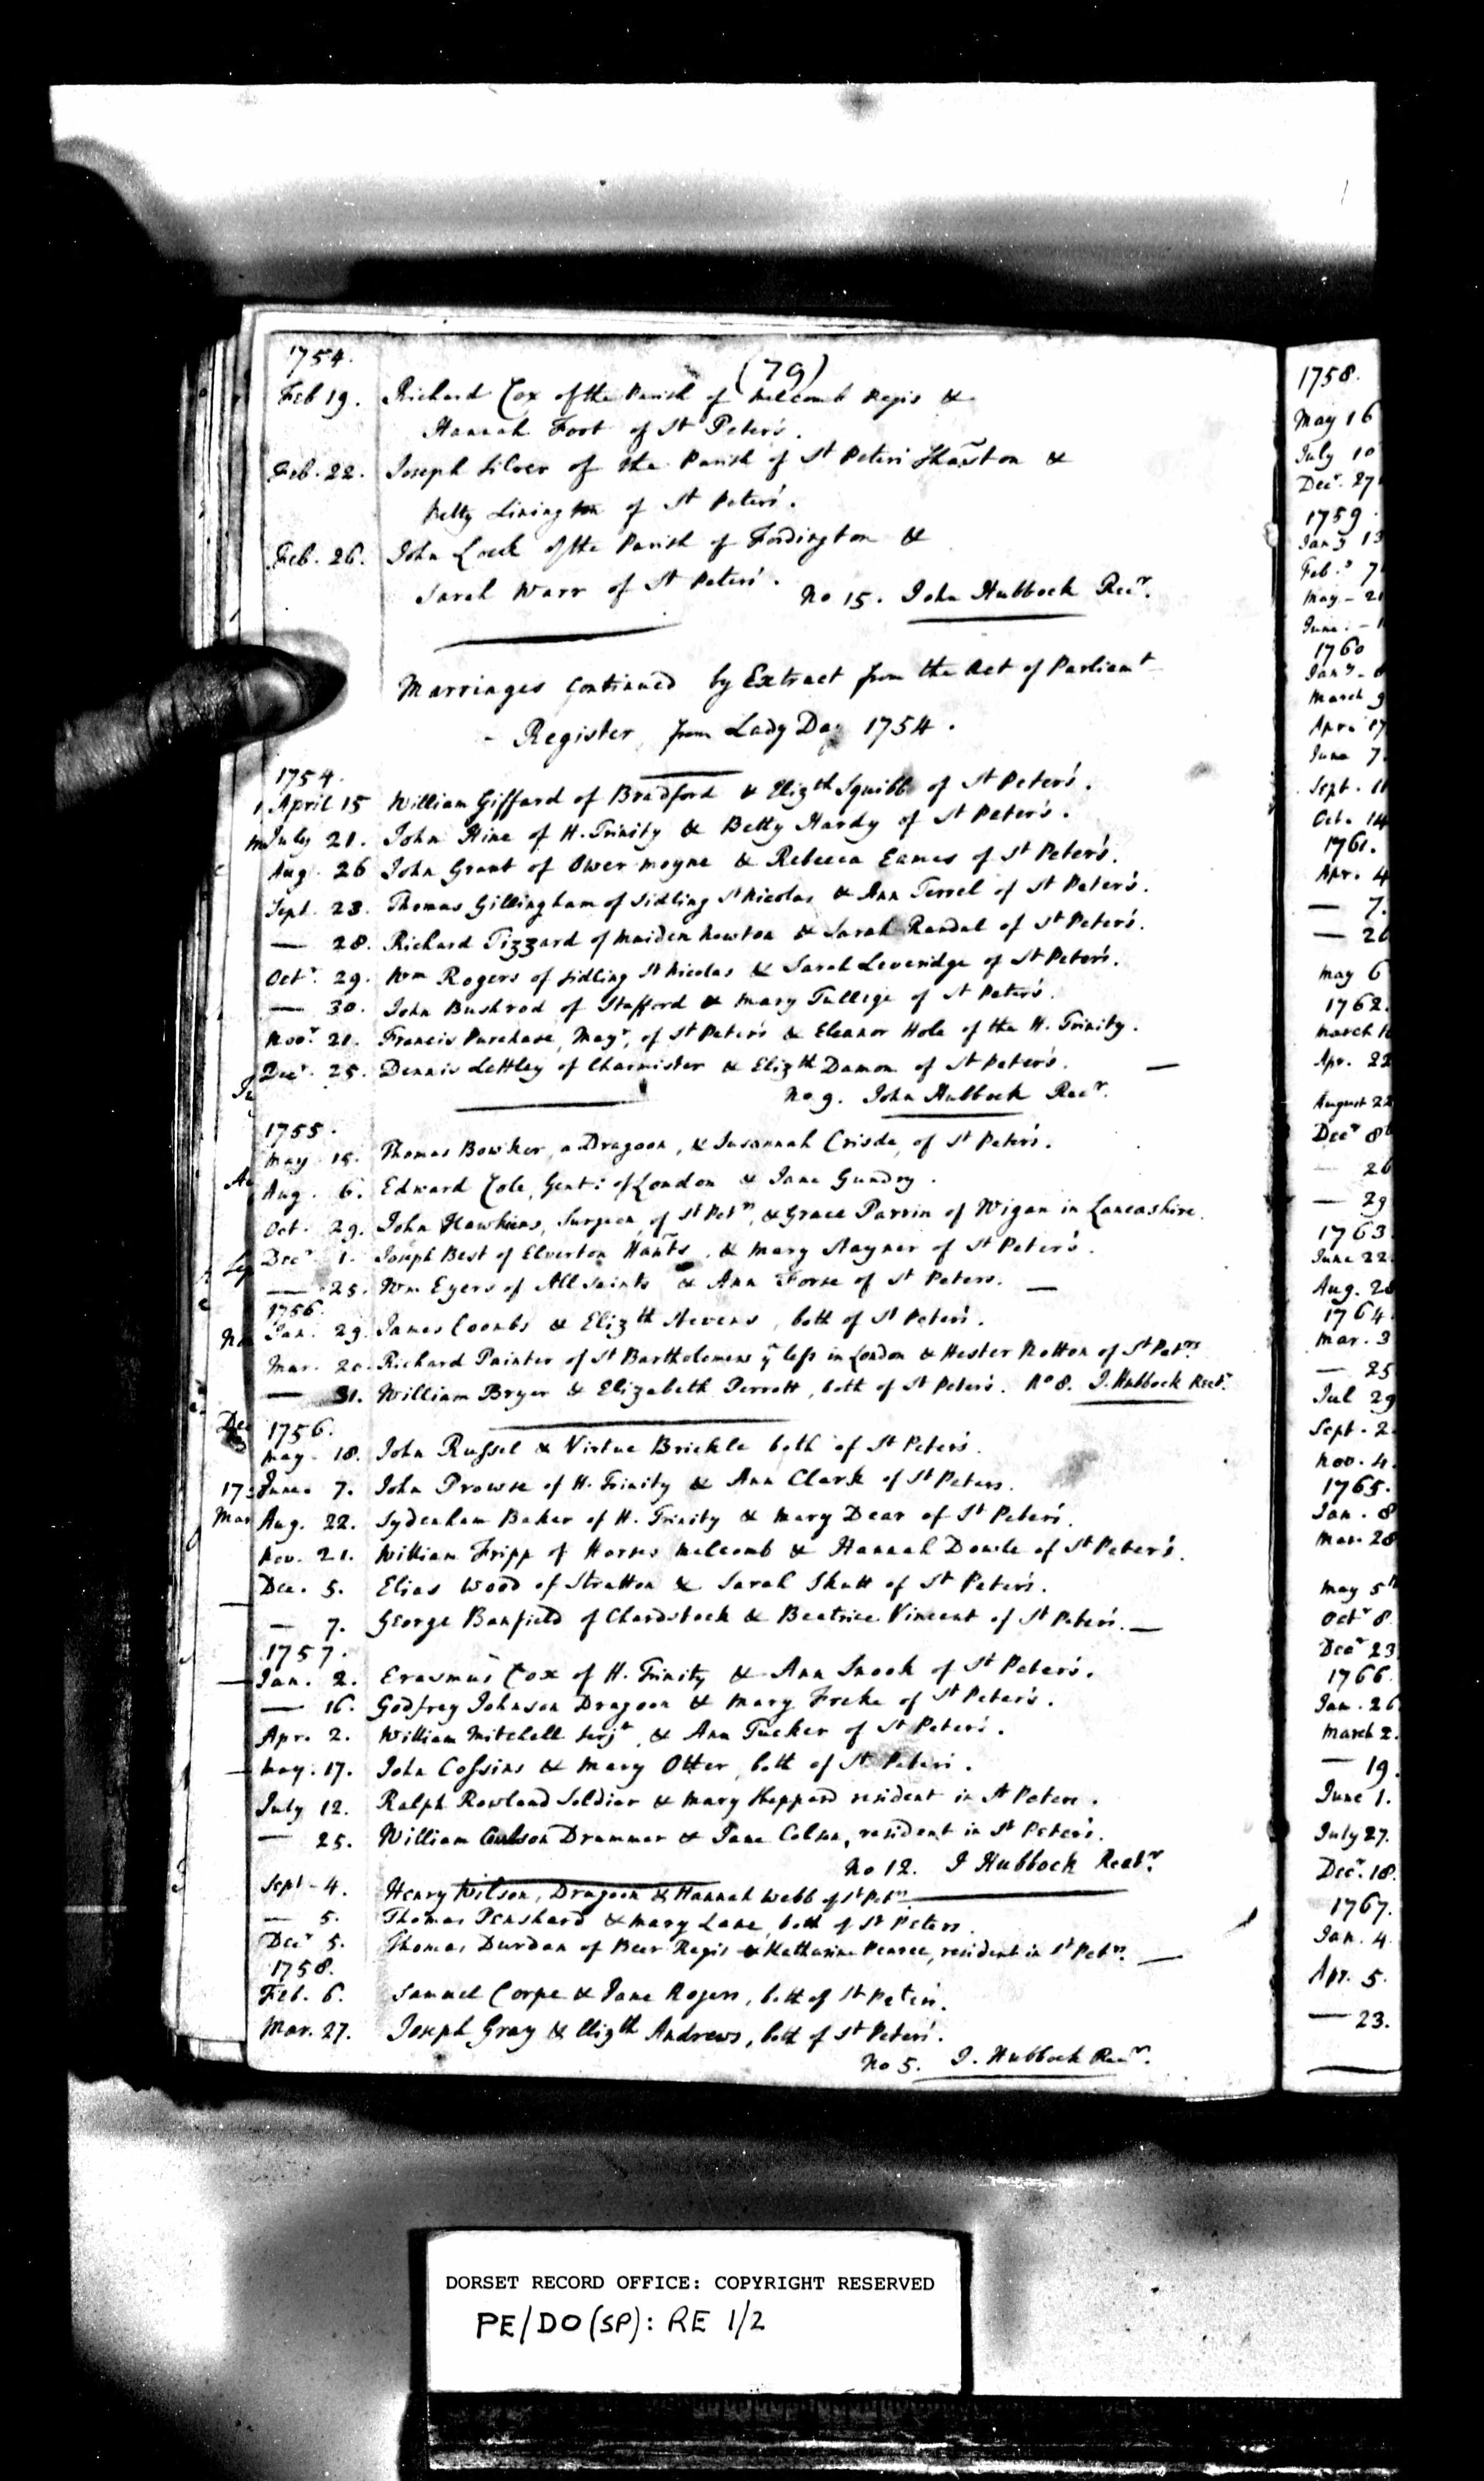 (79)
1754.
Feb 19. Richard Cox of the Parish of Melcomb Regis &
Hannah Foot of St Peter's.
Feb. 22. Joseph Silver of the Parish of St Peter's Shaston &
Betty Linington of St Peter's.
Feb. 26. John Lock of the Parish of Fordington &
Sarah Warr of St Peter's.
No 15. John Hubbock Recr.
Marriages Continued by Extract from the Act of Parliamt
- Register, from Lady Day 1754.
1754.
April 15 William Giffard of Bradford & Elizth Squibb of St Peter's.
July 21. John Hine of H. Trinity & Betty Hardy of St Peter's.
Aug. 26 John Grant of Ower moyne & Rebecca Eames of St Peter's.
Sept. 23. Thomas Gillingham of Sidling St Nicolas & Ann Terrel of St Peter's.
— 28. Richard Tizzard of Maiden Newton & Sarah Randal of St Peter's.
Octr. 29. Wm Rogers of Sidling St Nicolas & Sarah Leveridge of St Peter's.
— 30. John Bushrod of Stafford & Mary Tullige of St Peter's.
Novr. 21. Francis Purchase, Mayr, of St Peter's & Eleanor Hole of the H. Trinity.
Decr. 25. Dennis Lettley of Charmister & Elizth Damon of St Peter's. —
No. 9. John Hubbock Recr.
1755.
May 15. Thomas Bowker, a Dragoon, & Susannah Crisde, of St Peter's.
Aug. 6. Edward Cole, Gent: of London & Jane Gundry.
Oct. 29. John Hawkins, Surgeon, of St Petrs, & Grace Parrin of Wigan in Lancashire.
Decr 1. Joseph Best of Elverton Hants, & Mary Stayner of St Peter's.
— 25. Wm Eyers of All Saints & Ann Forse of St Peters. —
1756.
Jan. 29. James Coombs & Elizth Stevens, both of St Peter's.
Mar. 20. Richard Painter of St Bartholomews ye less in London & Hester Notton of St Petrs
— 31. William Bryer & Elizabeth Perrott, both of St Peter's. No 8. J. Hubbock Rectr.
1756.
May. 18. John Russel & Virtue Brickle both of St Peter's.
June. 7. John Prowse of H. Trinity & Ann Clark of St Peters.
Aug. 22. Sydenham Baker of H. Trinity & Mary Dear of St Peter's.
Nov. 21. William Fripp of Horses Melcomb & Hannah Dowle of St Peter's.
Dec. 5. Elias Wood of Stratton & Sarah Shutt of St Peter's.
— 7. George Banfield of Chardstock & Beatrice Vincent of St Peter's. —
1757.
Jan. 2. Erasmus Cox of H. Trinity & Ann Snook of St Peter's.
— 16. Godfrey Johnson Dragoon & Mary Freke of St Peter's.
Apr. 2. William Mitchell Serjt, & Ann Tucker of St Peter's.
May. 17. John Cossins & Mary Otter, both of St Peter's.
July 12. Ralph Rowland Soldier & Mary Heppard resident in St Peters.
— 25. William Coulson Drummer & Jane Colson, resident in St Peter's.
No 12. J Hubbock Rectr.
Sept. 4. Henry Wilson, Dragoon & Hannah Webb of St Petrs.
— 5. Thomas Penshard & Mary Lane, both of St Peters.
Decr 5. Thomas Durdan of Beer Regis & Katharine Pearce, resident in St Petrs. —
1758.
Feb. 6. Samuel Corpe & Jane Rogers, both of St Peters.
Mar. 27. Joseph Gray & Elizth Andrews, both of St Peters.
No 5. J. Hubbock Recr.
1758.
May 16
July 10
Decr. 27
1759.
Jany 13
Feb. 7
May - 21
June. - 1
1760
Jany.
March 9
Apr. 17
June 7.
Sept. 11
Oct. 14
1761.
Apr. 4
— 7.
— 26
May 6
1762.
March 10
Apr. 22
August 22
Decr 8
— 26
— 29
1763
June 22.
Aug. 28
1764.
Mar. 3
— 25
Jul 29
Sept. 2.
Nov. 4.
1765.
Jan. 8
Mar. 28
May 5th
Octr 8
Decr 23
1766.
Jan. 26
March 2.
— 19.
June 1.
July 27.
Decr. 18.
1767.
Jan. 4
Apr. 5.
— 23.
DORSET RECORD OFFICE: COPYRIGHT RESERVED
PE/DO(SP): RE 1/2